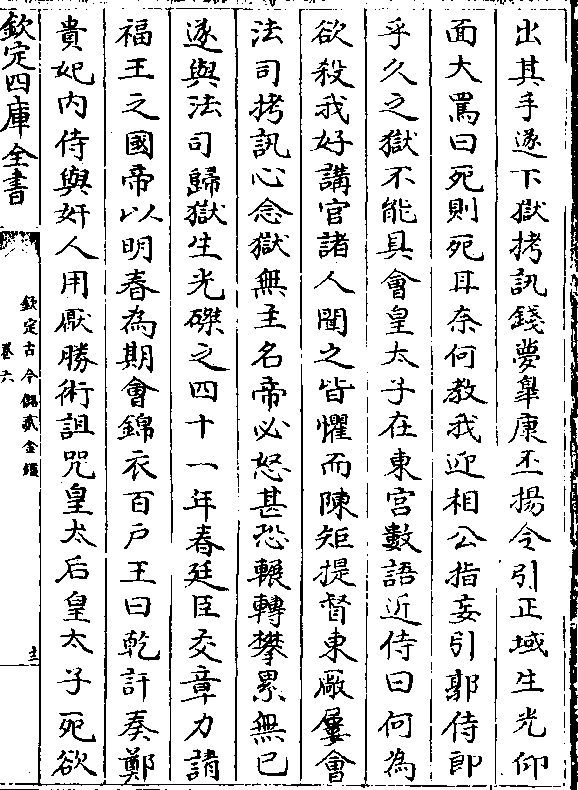 出其手遂下獄拷訊錢夢臯康丕揚令引正域生光仰
面大罵曰死則死耳奈何教我迎相公指妄引郭侍郎
乎久之獄不能具會皇太子在東宮數語近侍曰何為
欲殺我好講官諸人聞之皆懼而陳矩提督東廠屢會
法司拷訊心念獄無主名帝必怒甚恐輾轉攀累無已
遂與法司歸獄生光磔之四十一年春廷臣交章力請
福王之國帝以明春為期會錦衣百户王曰乾訐奏鄭
貴妃內侍與奸人用厭勝術詛咒皇太后皇太子死欲
欽定四庫全書
欽定古今儲貳金鑑
卷六